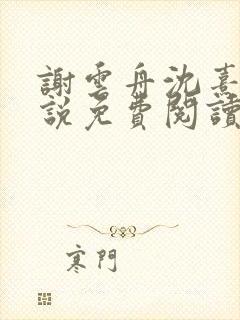 謝雲舟沈熹
說免費閱讀
寒門